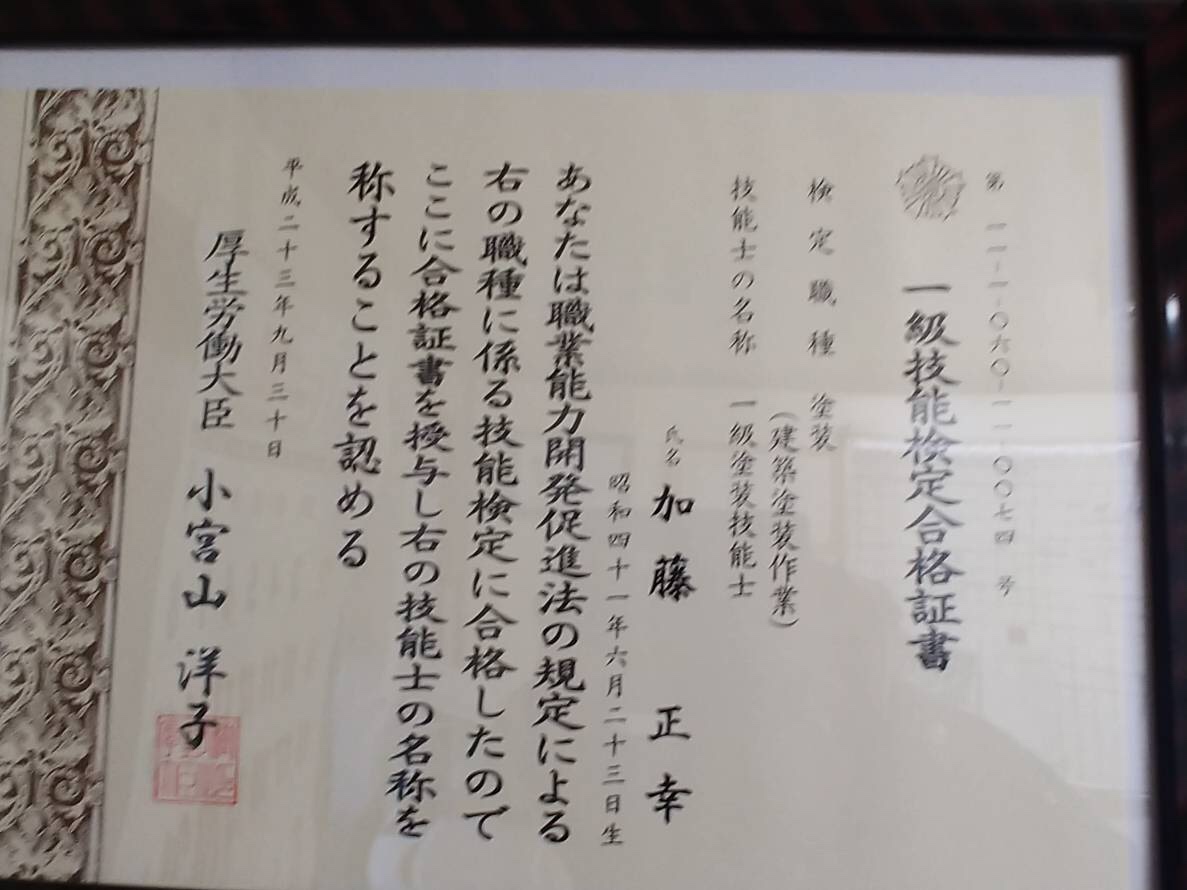 第一一-一-〇六〇-一一-〇〇七四号
一級技能検定合格証書
検定職種 塗装
(建築塗装作業)
技能士の名称 一級塗装技能士
氏名 加藤 正幸
昭和四十一年六月二十三日生
あなたは職業能力開発促進法の規定による
右の職種に係る技能検定に合格したので
ここに合格証書を授与し右の技能士の名称を
称することを認める
平成二十三年九月三十日
厚生労働大臣 小宮山 洋子